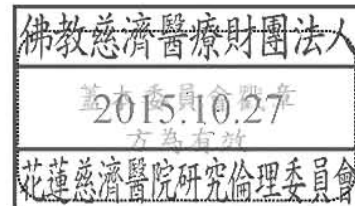 佛教慈濟醫療財團法人
蓋本委員會戳章
2015.10.27
方為有效
花蓮慈濟醫院研究倫理委員會